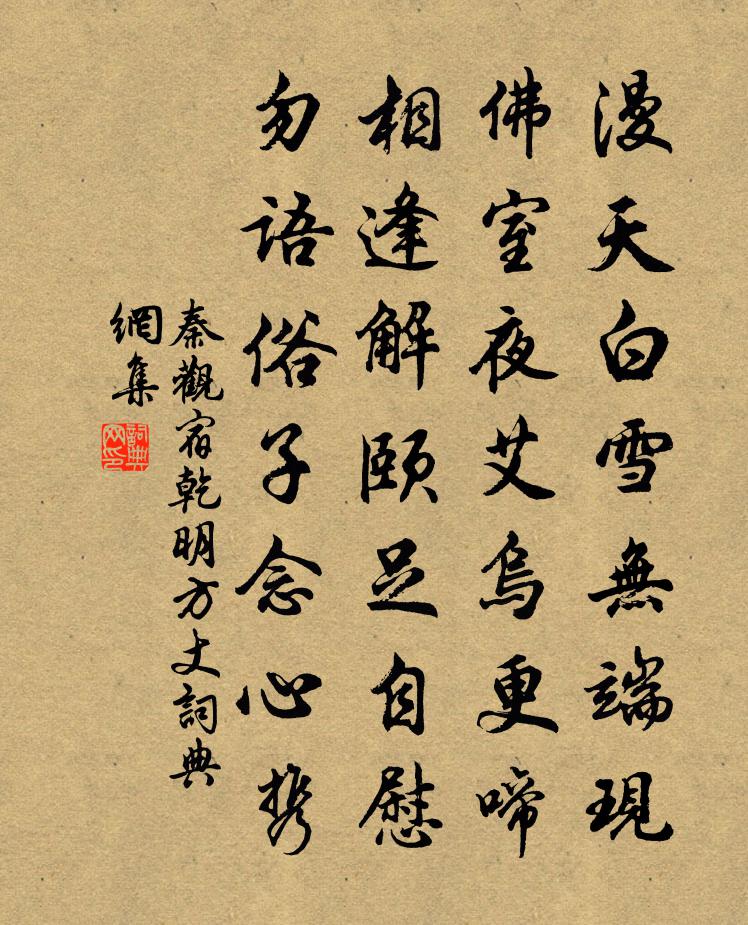 漫天白雪無端現
佛室夜艾烏更啼
相逢解頤足自慰
勿語俗子念心携
秦觀宿乾明方丈詞典
網集
詞典
网印